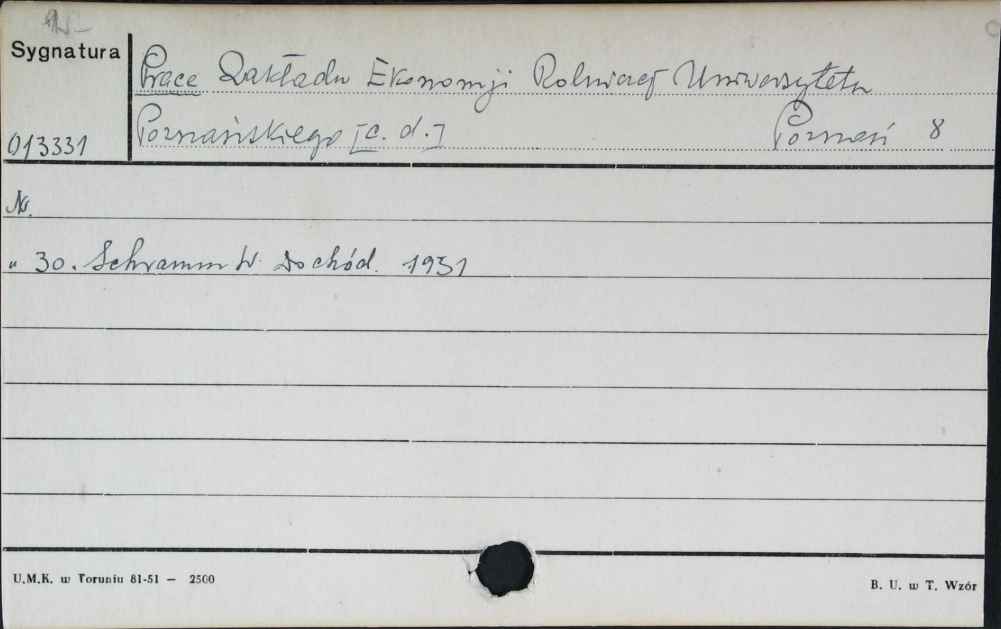 Sygnatura
Prace Zakładu Ekonomji Rolniczej Uniwersytetu
013331
Poznańskiego [c. d.] Poznań 8
Nr.
„ 30. Schramm W. Dochód. 1931
U.M.K. w Toruniu 81-51 — 2500
B. U. w T. Wzór